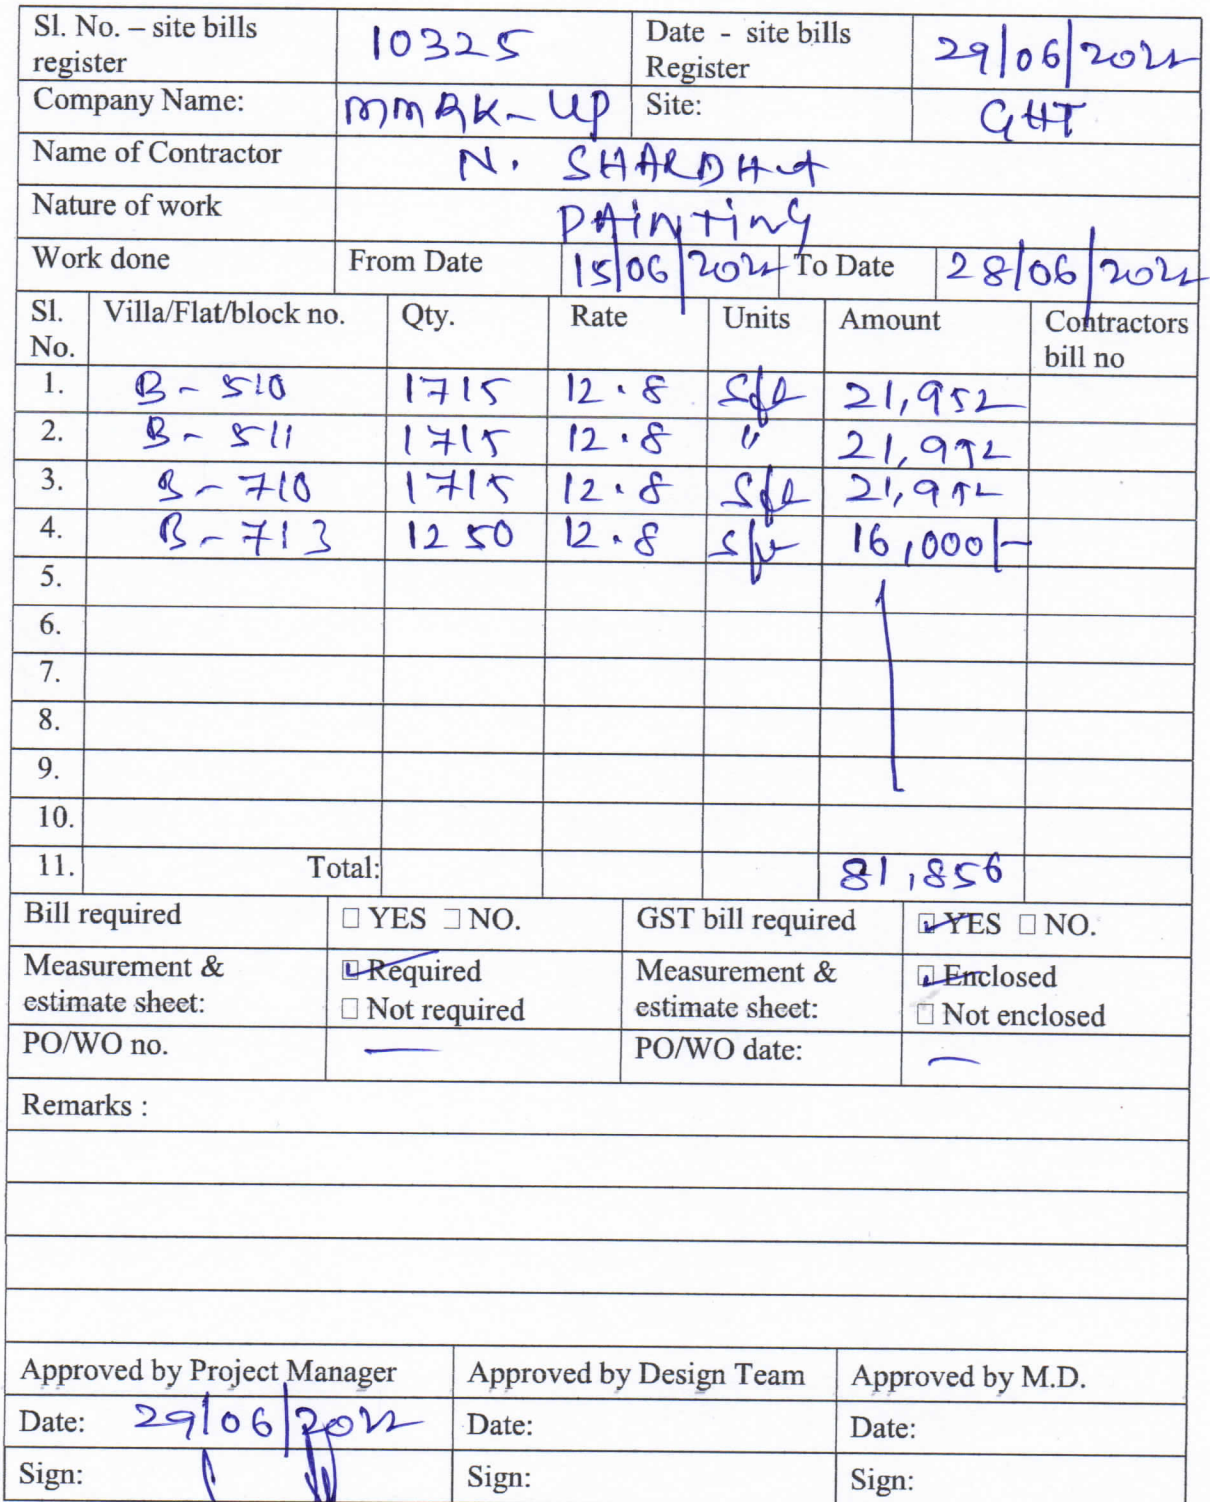 Sl. No. – site bills register 10325 Date - site bills Register 29/06/2022
Company Name: MMRK-UP Site: GHT
Name of Contractor N. SHARDHA
Nature of work PAINTING
Work done From Date 15/06/2022 To Date 28/06/2022
Sl. No. Villa/Flat/block no. Qty. Rate Units Amount Contractors bill no
1. B-510 1715 12.8 Sft 21,952
2. B-511 1715 12.8 " 21,952
3. B-710 1715 12.8 Sft 21,952
4. B-713 1250 12.8 Sft 16,000/-
5.
6.
7.
8.
9.
10.
11. Total: 81,856
Bill required □ YES □ NO. GST bill required ☑ YES □ NO.
Measurement & estimate sheet: ☑ Required □ Not required Measurement & estimate sheet: ☑ Enclosed □ Not enclosed
PO/WO no. — PO/WO date: —
Remarks :
Approved by Project Manager Approved by Design Team Approved by M.D.
Date: 29/06/2022 Date: Date:
Sign: Sign: Sign: